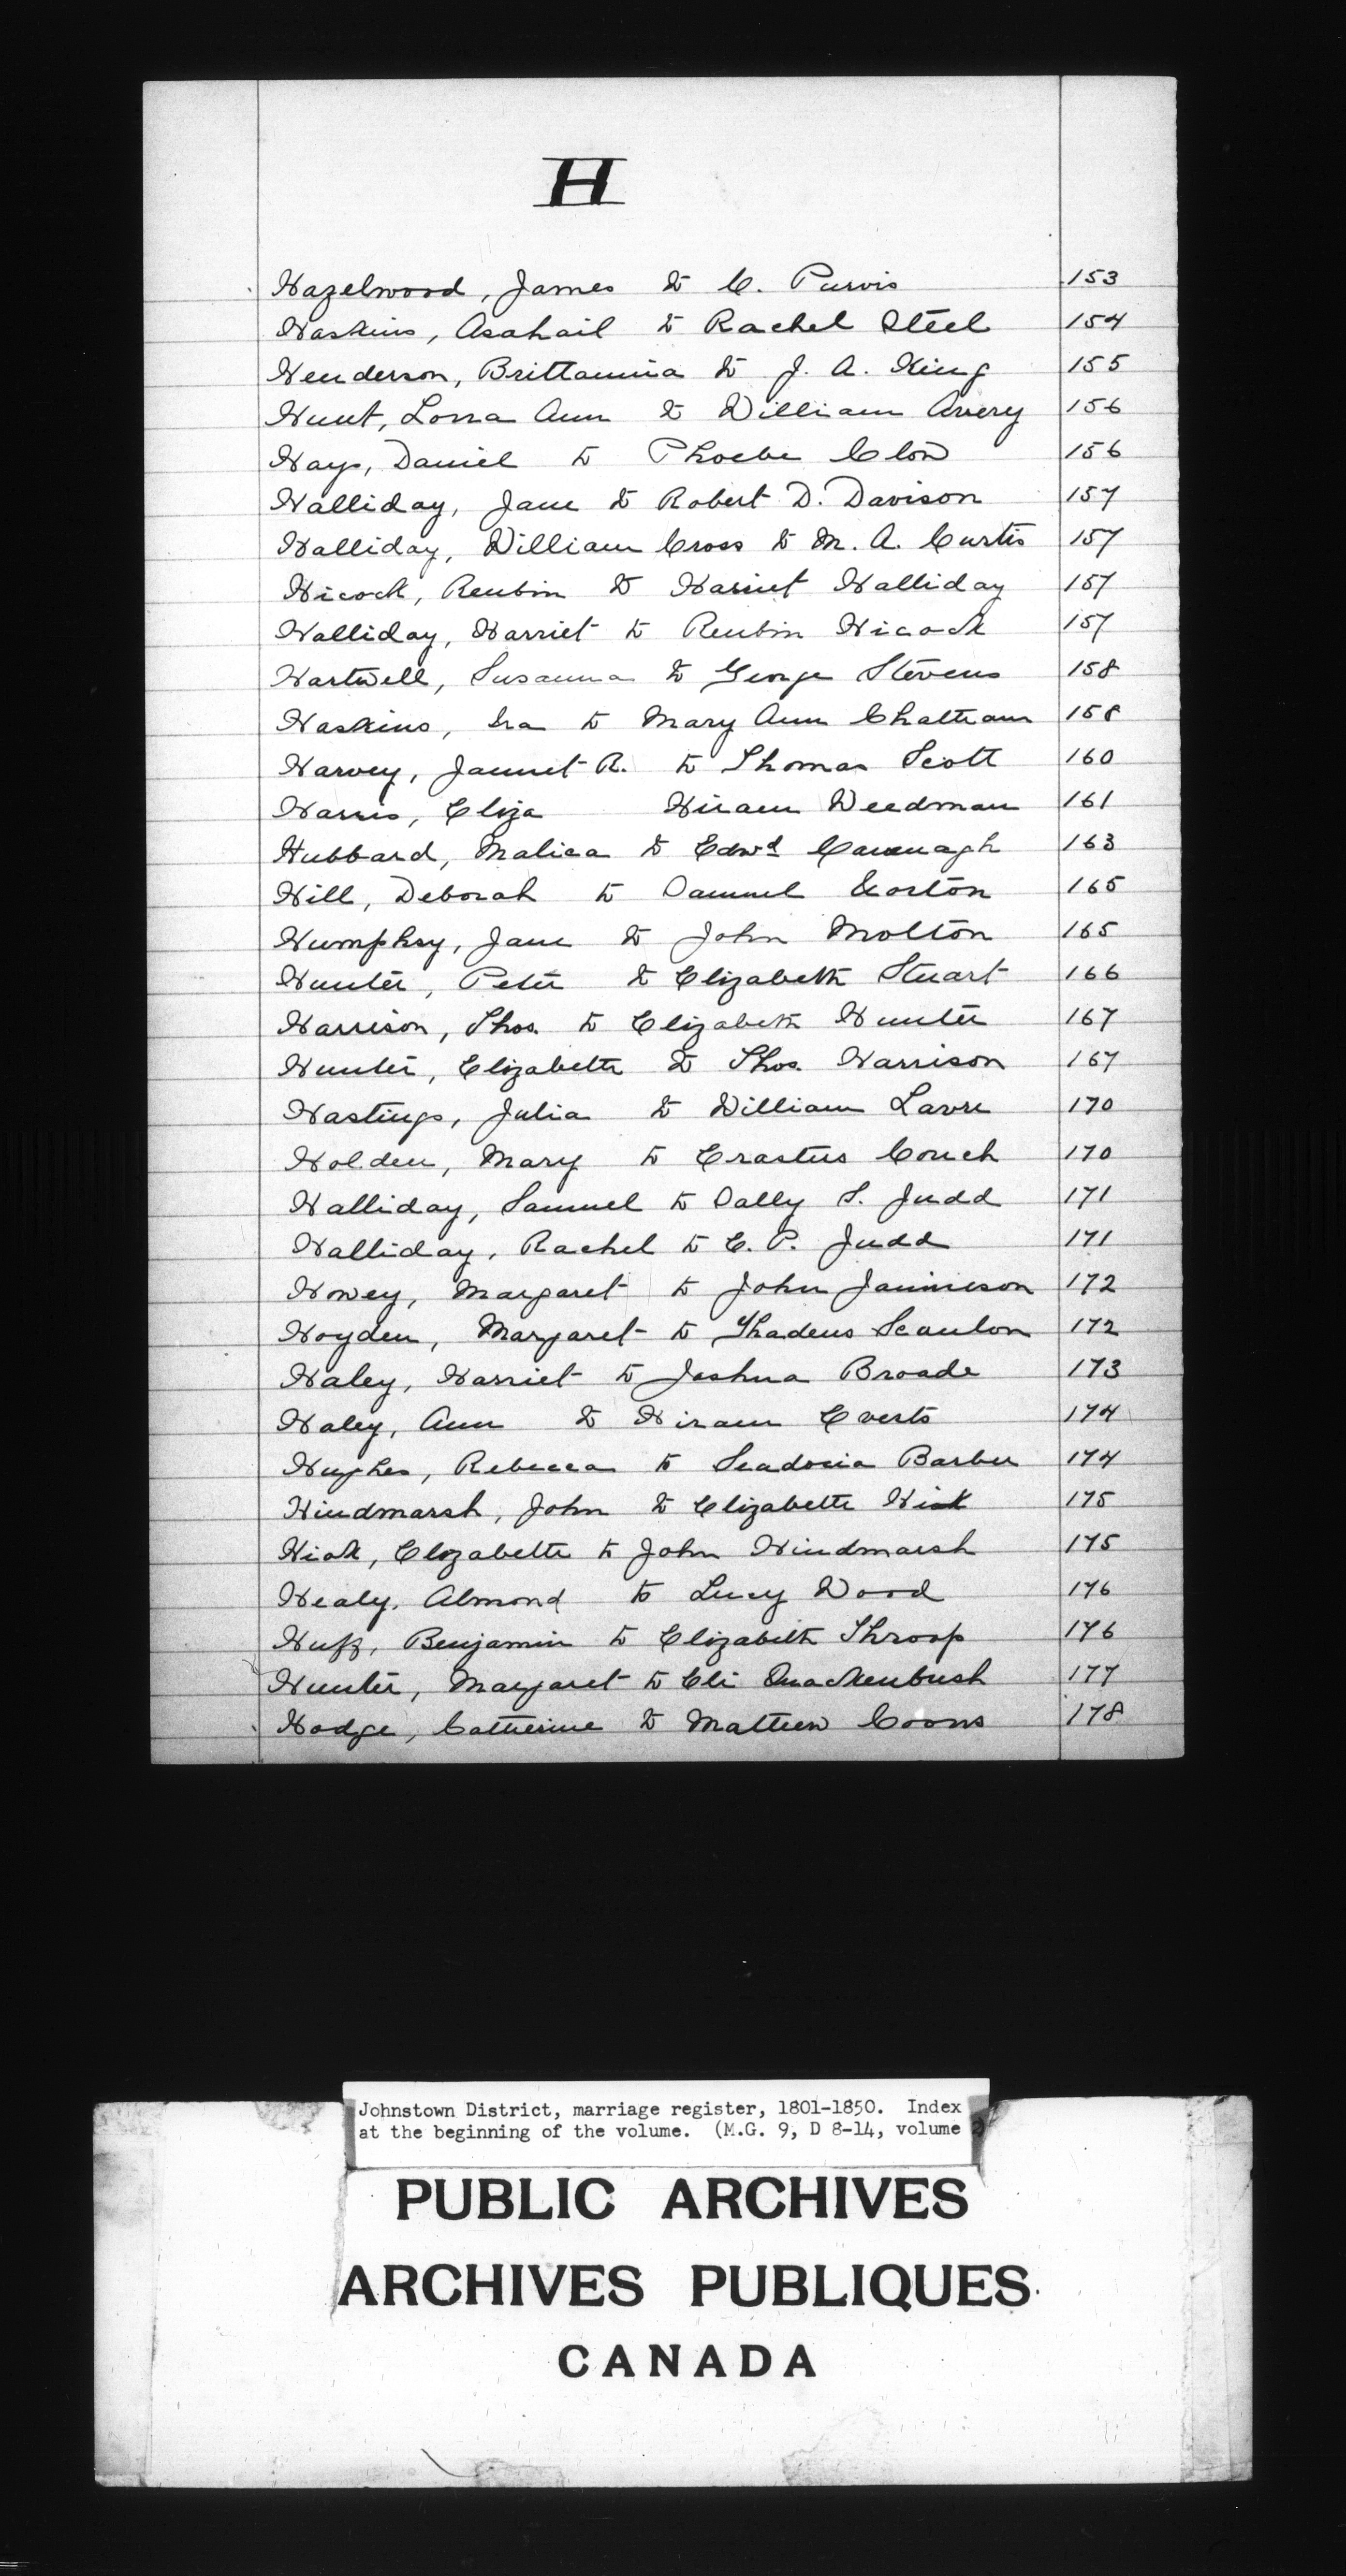 H
Hazelwood, James to C. Purvis 153
Haskins, Asahail to Rachel Steel 154
Henderson, Brittannia to J. A. King 155
Hunt, Lorra Ann to William Avery 156
Hays, Daniel to Phoebe Clow 156
Halliday, Jane to Robert D. Davison 157
Halliday, William Cross to M. A. Curtis 157
Hicock, Reubin to Harriet Halliday 157
Halliday, Harriet to Reubin Hicock 157
Hartwell, Susanna to George Stevens 158
Haskins, Ira to Mary Ann Chattram 158
Harvey, Jannet R. to Thomas Scott 160
Harris, Eliza Hiram Weedman 161
Hubbard, Malica to Edwd Cavenagh 163
Hill, Deborah to Samuel Corton 165
Humphry, Jane to John Molton 165
Hunter, Peter to Elizabeth Stuart 166
Harrison, Thos. to Elizabeth Hunter 167
Hunter, Elizabeth to Thos. Harrison 167
Hastings, Julia to William Lavre 170
Holden, Mary to Erastus Couch 170
Halliday, Samuel to Sally S. Judd 171
Halliday, Rachel to C. P. Judd 171
Howey, Margaret to John Jannieson 172
Hoyden, Margaret to Thadeus Scanlon 172
Haley, Harriet to Joshua Broade 173
Haley, Ann to Hiram Everts 174
Hughes, Rebecca to Barber 174
Hindmarsh, John to Elizabeth Hick 175
Hick, Elizabeth to John Hindmarsh 175
Healy, Almond to Lucy Wood 176
Huff, Benjamin to Elizabeth Throop 176
Hunter, Margaret to Eli Quackenbush 177
Hodge, Catherine to Mathew Coons 178
Johnstown District, marriage register, 1801-1850. Index
at the beginning of the volume. (M.G. 9, D 8-14, volume
PUBLIC ARCHIVES
ARCHIVES PUBLIQUES
CANADA